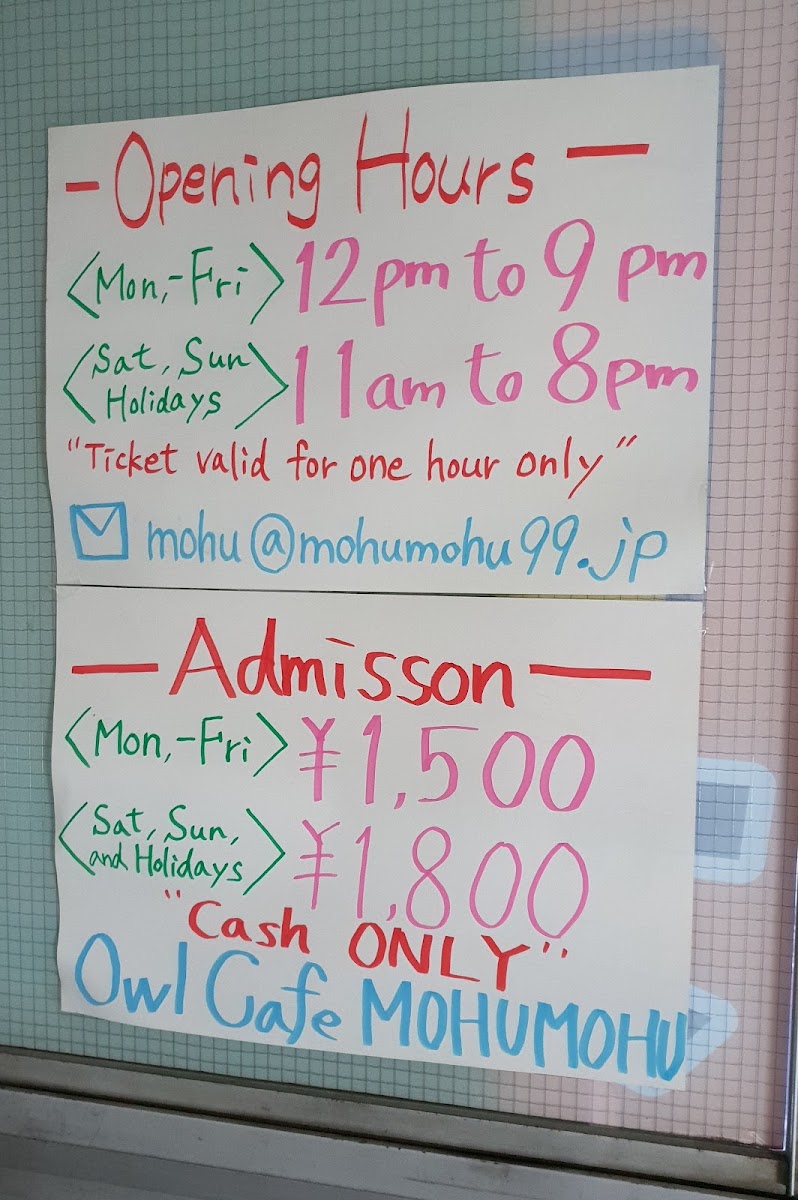 - Opening Hours -
<Mon,-Fri> 12pm to 9 pm
<Sat, Sun
Holidays> 11am to 8pm
"Ticket valid for one hour only"
mohu@mohumohu99.jp
- Admisson -
<Mon,-Fri> ¥1,500
<Sat, Sun,
and Holidays> ¥1,800
"Cash ONLY"
Owl Cafe MOHUMOHU